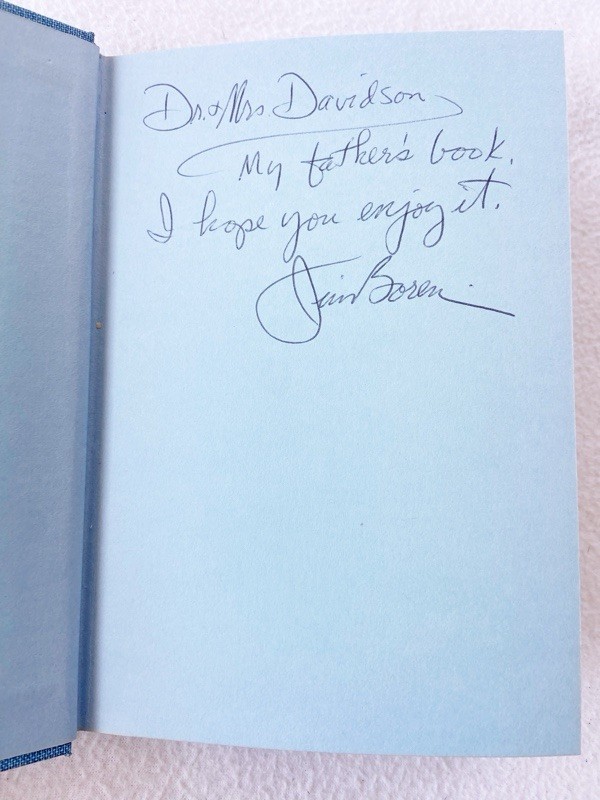 Dr. & Mrs. Davidson
My father's book.
I hope you enjoy it.
Jim Boren